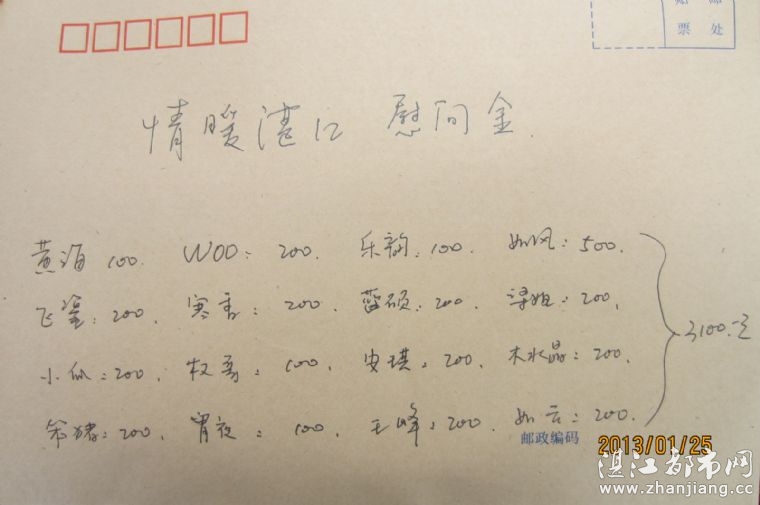 贴 邮
票 处
情暖湛江 慰问金
黄海 100. WOO: 200. 乐韵: 100. 如风: 500.
飞鲨: 200. 寒香: 200. 蓝硕: 200. 梁姐: 200.
3100.元
小瓜: 200. 权哥: 100. 安琪: 200. 木水晶: 200.
笨猪: 200. 宵夜: 100. 王峰: 200. 如云: 200.
邮政编码 2013/01/25
湛江都市网
www.zhanjiang.cc